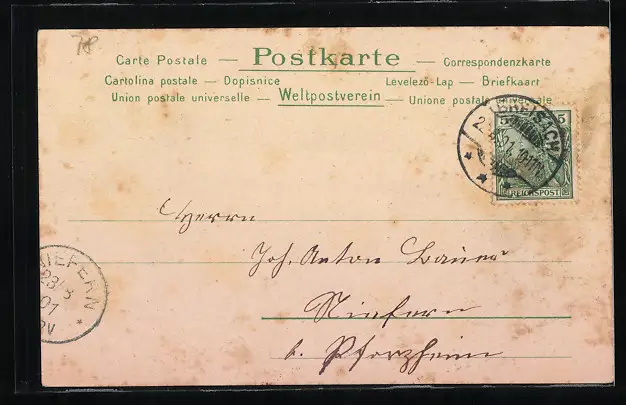 78
Carte Postale — Postkarte — Correspondenzkarte
Cartolina postale — Dopisnice Levelező-Lap — Briefkaart
Union postale universelle — Weltpostverein — Unione postale universale
BREISACH
5 5
REICHSPOST
Herrn
Joh. Anton Bauer
NIEFERN
23/3
01
Niefern
b. Pforzheim